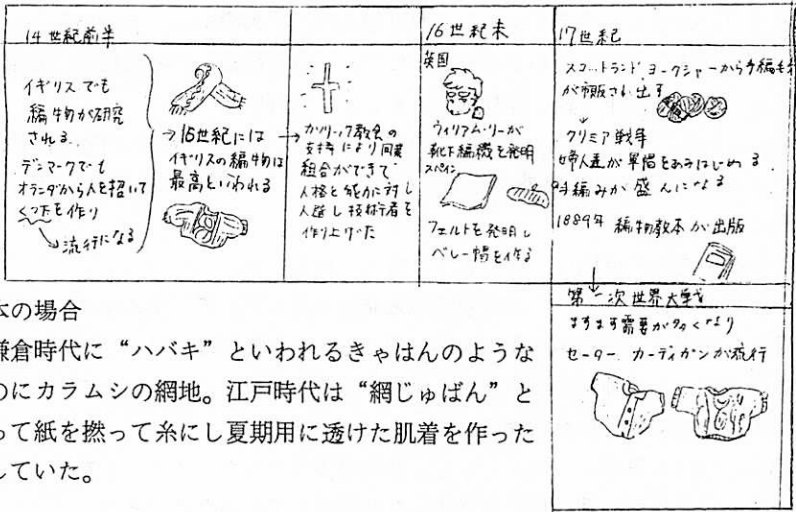 14世紀前半
イギリスでも
編物が研究
される.
デンマークでも
オランダから人を招いて
くつ下を作り
流行になる
→16世紀には
イギリスの編物は
最高といわれる
→カソリック教会の
支持により同業
組合ができて
人格と能力に対し
人選し技術者を
作り上げた
16世紀末
英国
ウィリアム・リーが
靴下編機を発明
スペイン
フェルトを発明し
ベレー帽を作る
17世紀
スコットランド ヨークシャーから手編毛糸
が市販され出す
クリミア戦争
婦人達が軍帽をあみはじめる
手編みが盛んになる
1889年 編物教本が出版
第一次世界大戦
ますます需要が多くなり
セーター カーディガンが流行
本の場合
鎌倉時代に“ハバキ”といわれるきゃはんのような
のにカラムシの網地。江戸時代は“網じゅばん”と
って紙を撚って糸にし夏期用に透けた肌着を作った
していた。